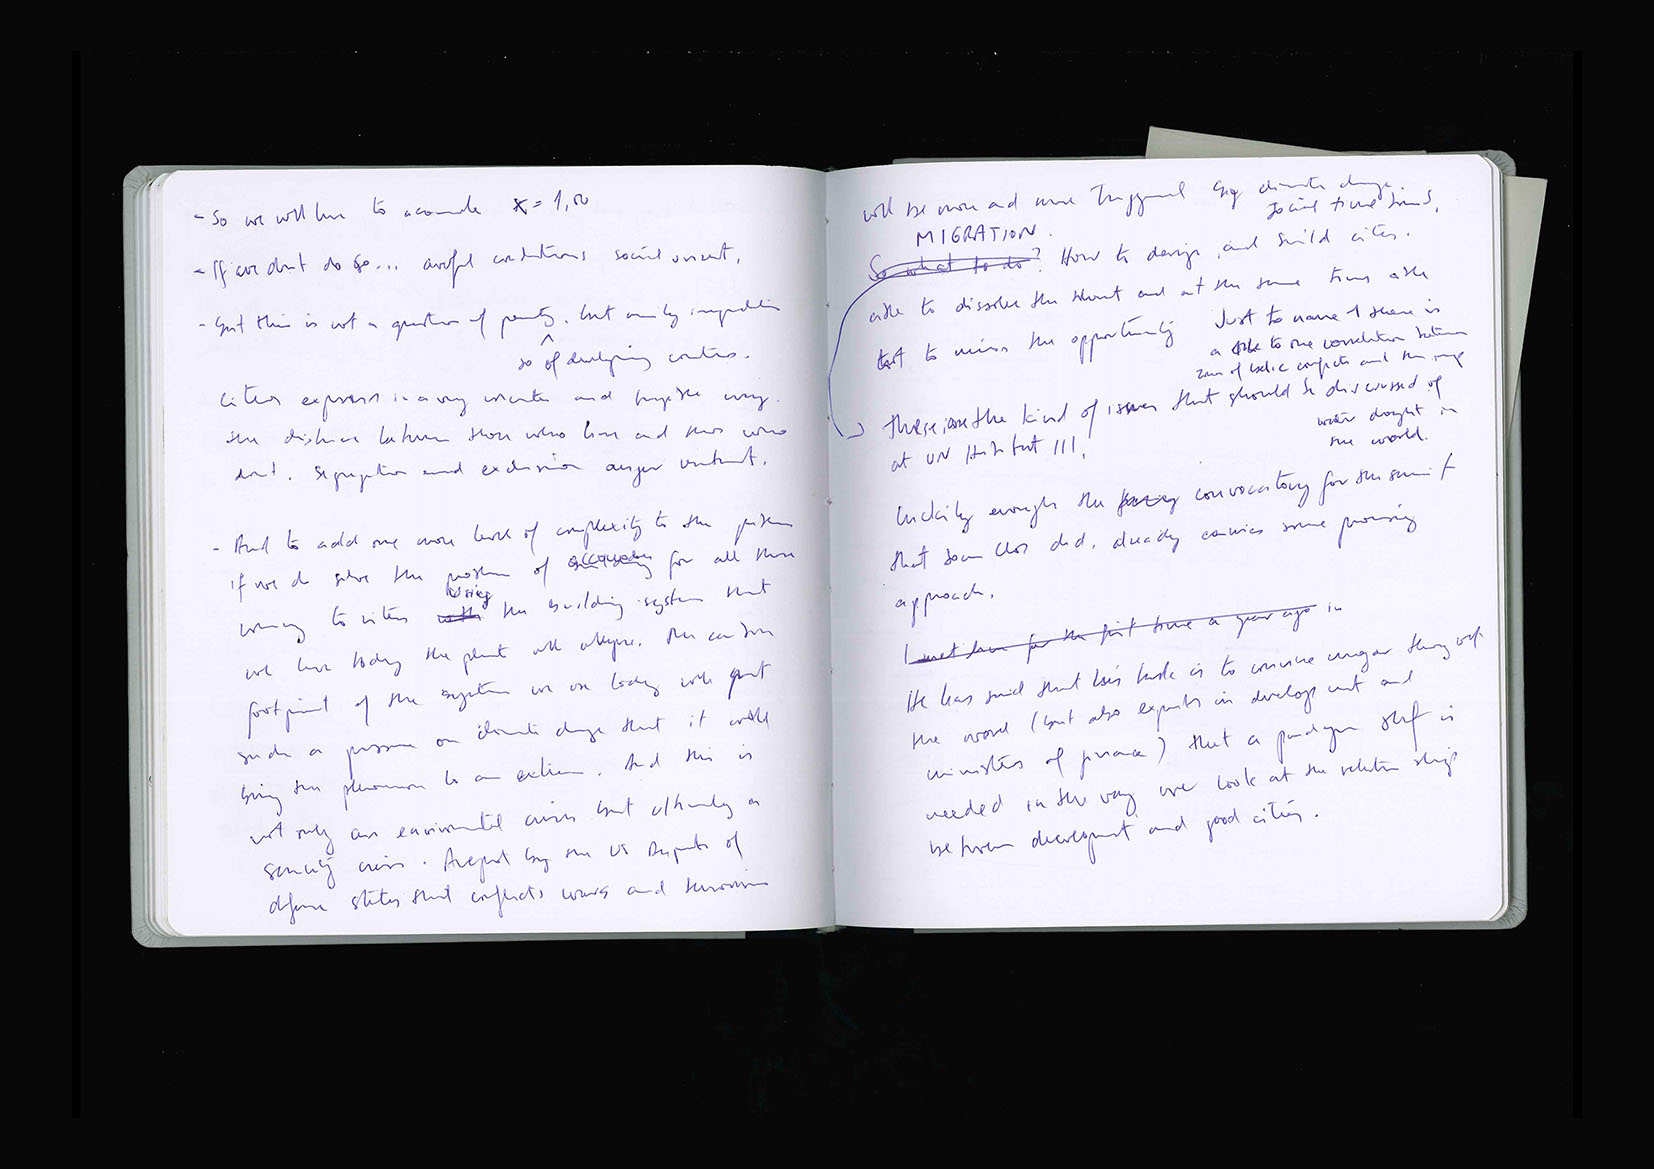 - So we will have to accomodate x = 1,00
- If we dont do so... awful conditions social unrest.
- But this is not a question of poverty, but mainly inequalities
so of developing countries.
Cities express in a very concrete and tangible way.
the distance between those who have and those who
dont. Segregation and exclusion anger
- And to add one more level of complexity to the problem
if we do solve the problem of for all those
coming to cities using the building system that
we have today the planet will collapse. The carbon
footprint of the system we use today will put
such a pressure on climate change that it would
bring the phenomenon to an extreme. And this is
not only an enviromental crisis but ultimately a
security crisis. A report by the US Departs of
defense states that conflicts wars and terrorism
will be more and more triggered by climate change
social time bombs.
MIGRATION.
So what to do? How to design and build cities.
able to dissolve the threat and at the same time able
not to miss the opportunity
Just to name 1 there is
a one to one correlation between
zones of conflicts and the map
of
water drought in
the world.
These, are the kind of issues that should be discussed
at UN Habitat III!
Luckily enough the convocatory for the summit
that Joan Clos did, already contains some promising
approach.
I met him for the first time a year ago in
He has said that his task is to convince mayors through out
the word (but also experts in development and
ministers of finance) that a paradigm shift is
needed in the way we look at the relation ship
between development and good cities.